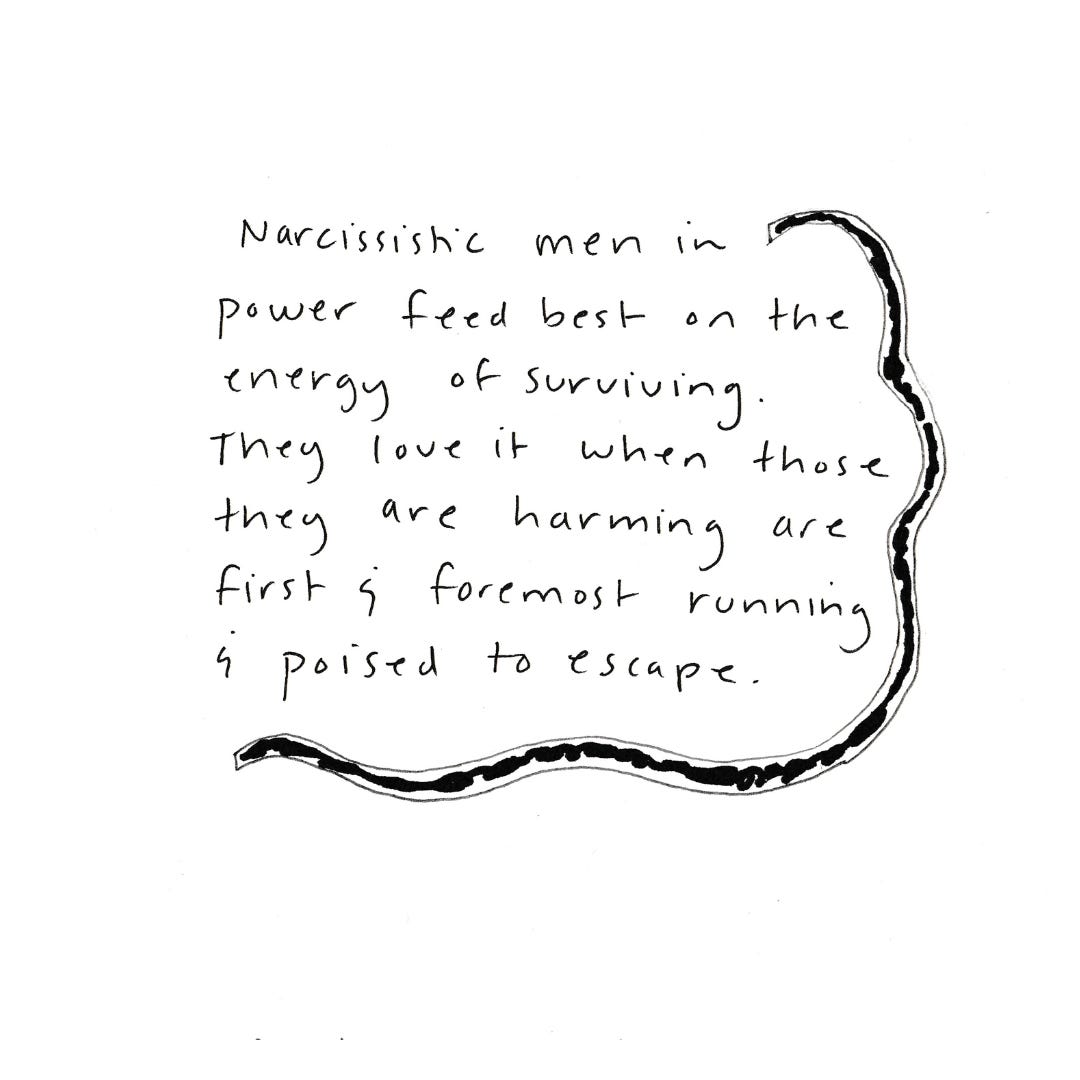 Narcissistic men in
power feed best on the
energy of surviving.
They love it when those
they are harming are
first & foremost running
& poised to escape.